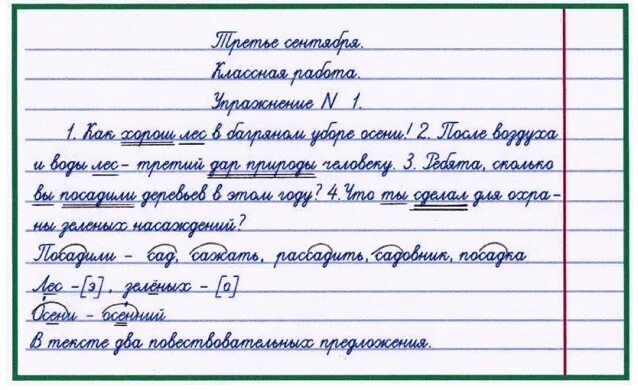 Третье сентября.
Классная работа.
Упражнение N 1.
1. Как хорош лес в багряном уборе осени! 2. После воздуха
и воды лес - третий дар природы человеку. 3. Ребята, сколько
вы посадили деревьев в этом году? 4. Что ты сделал для охра-
ны зеленых насаждений?
Посадили - сад, сажать, рассадить, садовник, посадка
Лес - [э], зелёных - [о]
Осени - осенний
В тексте два повествовательных предложения.